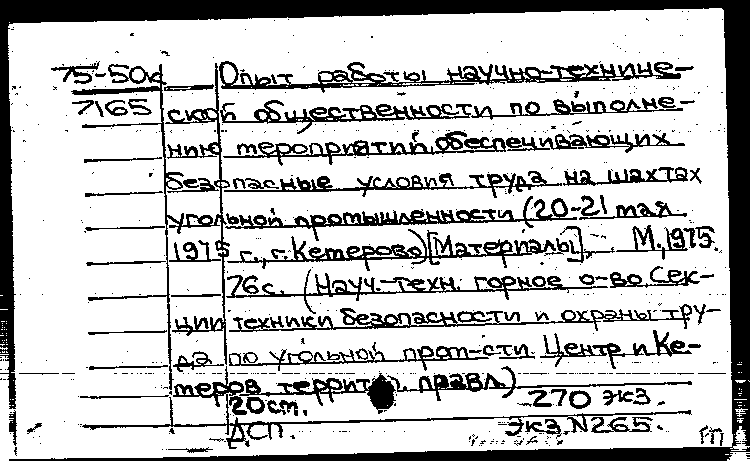 75-50к Опыт работы научно-техниче-
7165 ской общественности по выполне-
нию мероприятий, обеспечивающих
безопасные условия труда на шахтах
угольной промышленности (20-21 мая
1975 г., г. Кемерово) [Материалы]. М., 1975.
76с. (Науч.-техн. горное о-во. Сек-
ции техники безопасности и охраны тру-
да по угольной пром-сти Центр. и Ке-
меров. территор. правл.)
20см. 270 экз.
ДСП. Экз. N265.
гп